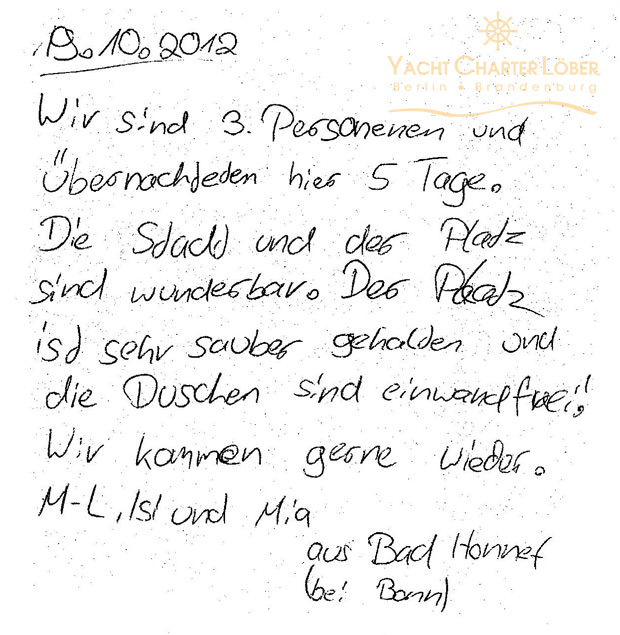 19.10.2012
YACHT CHARTER LÖBER
Berlin & Brandenburg
Wir sind 3. Personenen und
Übernachteden hier 5 Tage.
Die Stadt und der Platz
sind wunderbar. Der Platz
ist sehr sauber gehalten und
die Duschen sind einwandfrei!
Wir kommen gerne wieder.
M-L, Isi und Mia
aus Bad Honnef
(bei Bonn)